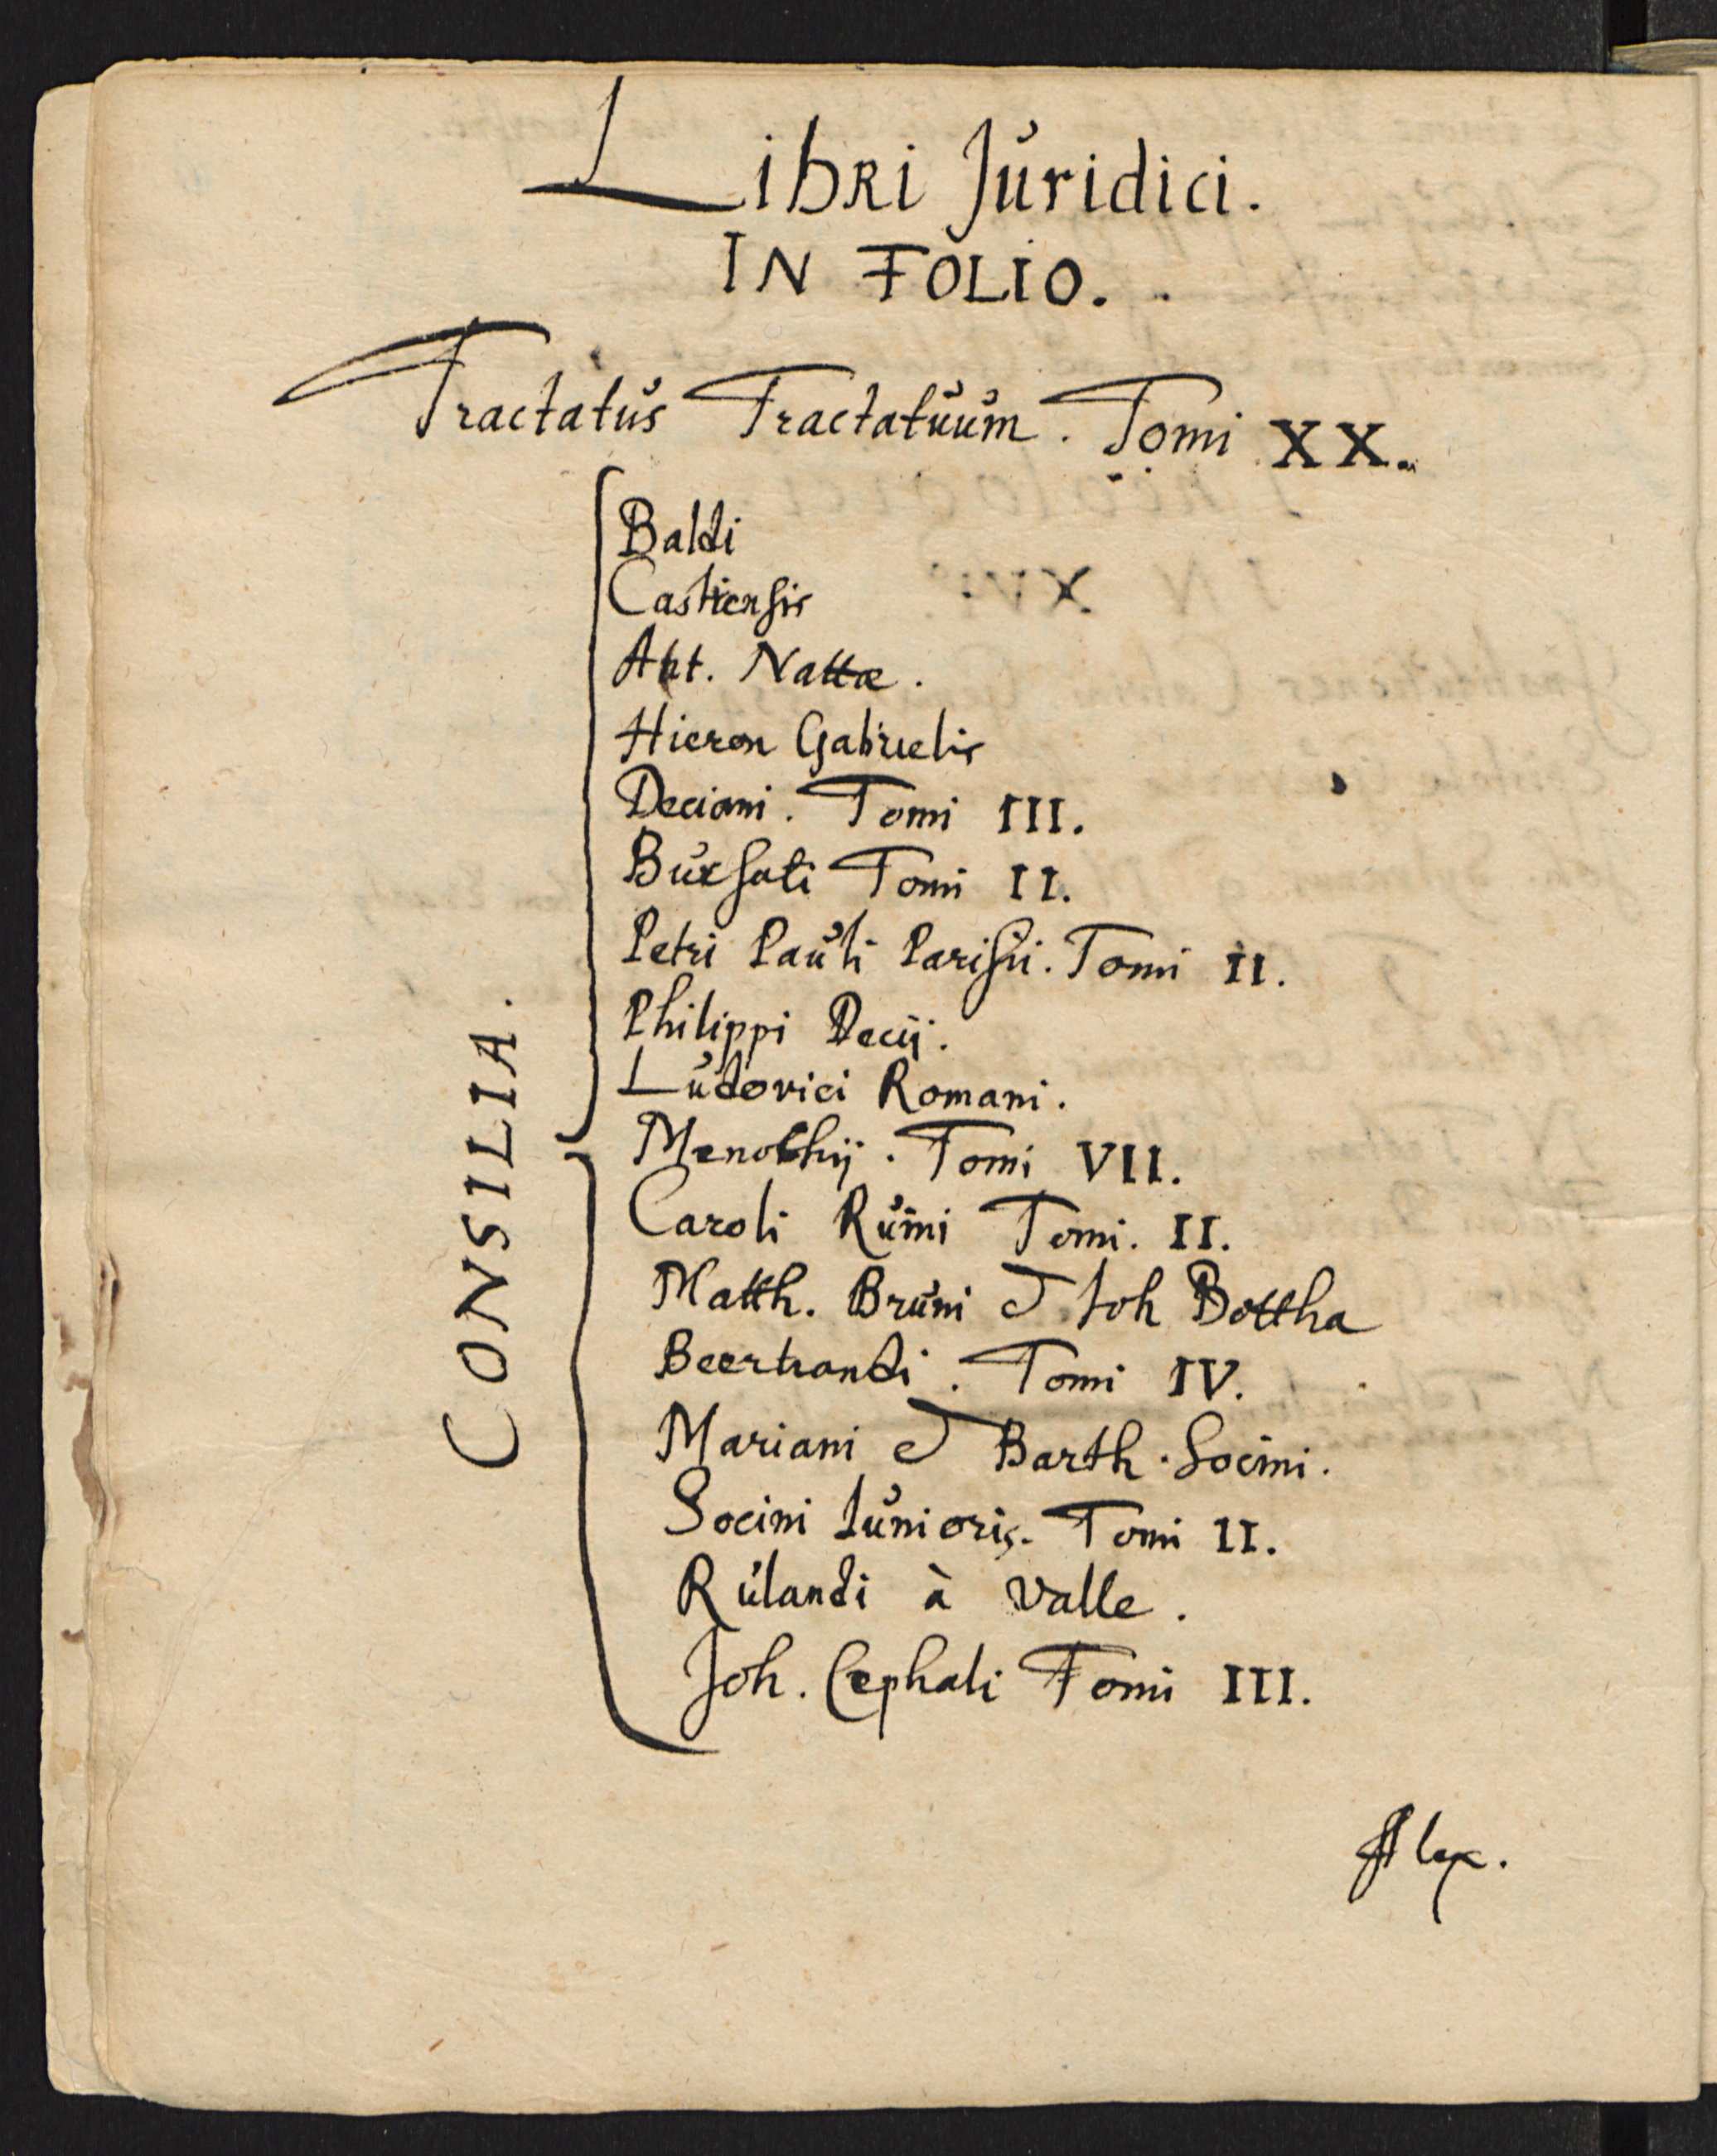 Libri Juridici.
IN FOLIO.
Tractatus Tractatuum. Tomi XX.
CONSILIA.
Baldi
Castrensis
Ant. Nattæ.
Hieron Gabrielis
Deciani. Tomi III.
Bursati Tomi II.
Petri Pauli Parisii. Tomi II.
Philippi Decij.
Ludovici Romani.
Menochij. Tomi VII.
Caroli Ruini Tomi. II.
Matth. Bruni et Joh Bottha
Beertrandi. Tomi IV.
Mariani et Barth. Socini.
Socini Junioris. Tomi II.
Rulandi à Valle.
Joh. Cephali Tomi III.
Alex.